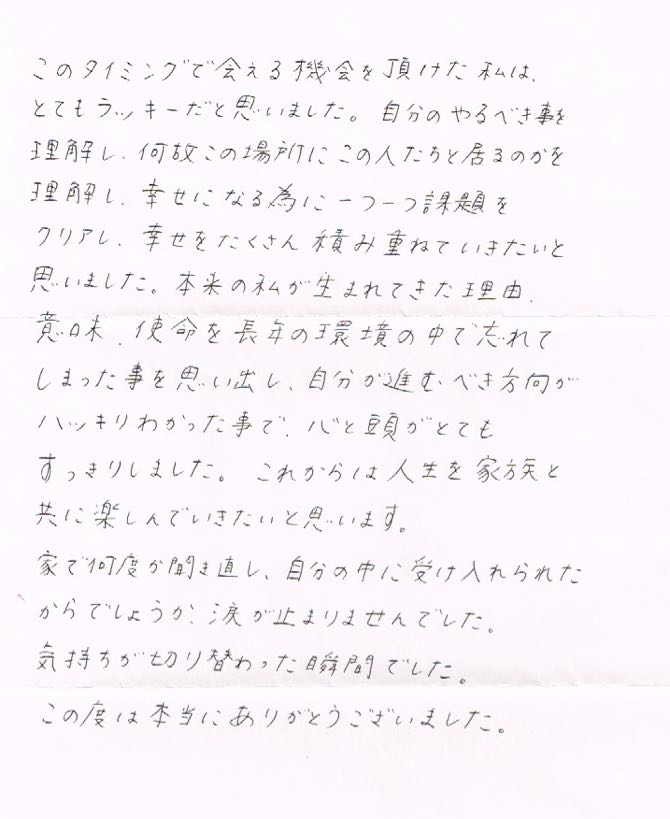 このタイミングで会える機会を頂けた私は、
とてもラッキーだと思いました。自分のやるべき事を
理解し、何故この場所にこの人たちと居るのかを
理解し、幸せになる為に一つ一つ課題を
クリアし、幸せをたくさん積み重ねていきたいと
思いました。本来の私が生まれてきた理由、
意味、使命を長年の環境の中で忘れて
しまった事を思い出し、自分が進むべき方向が
ハッキリわかった事で、心と頭がとても
すっきりしました。これからは人生を家族と
共に楽しんでいきたいと思います。
家で何度か聞き直し、自分の中に受け入れられた
からでしょうか、涙が止まりませんでした。
気持ちが切り替わった瞬間でした。
この度は本当にありがとうございました。